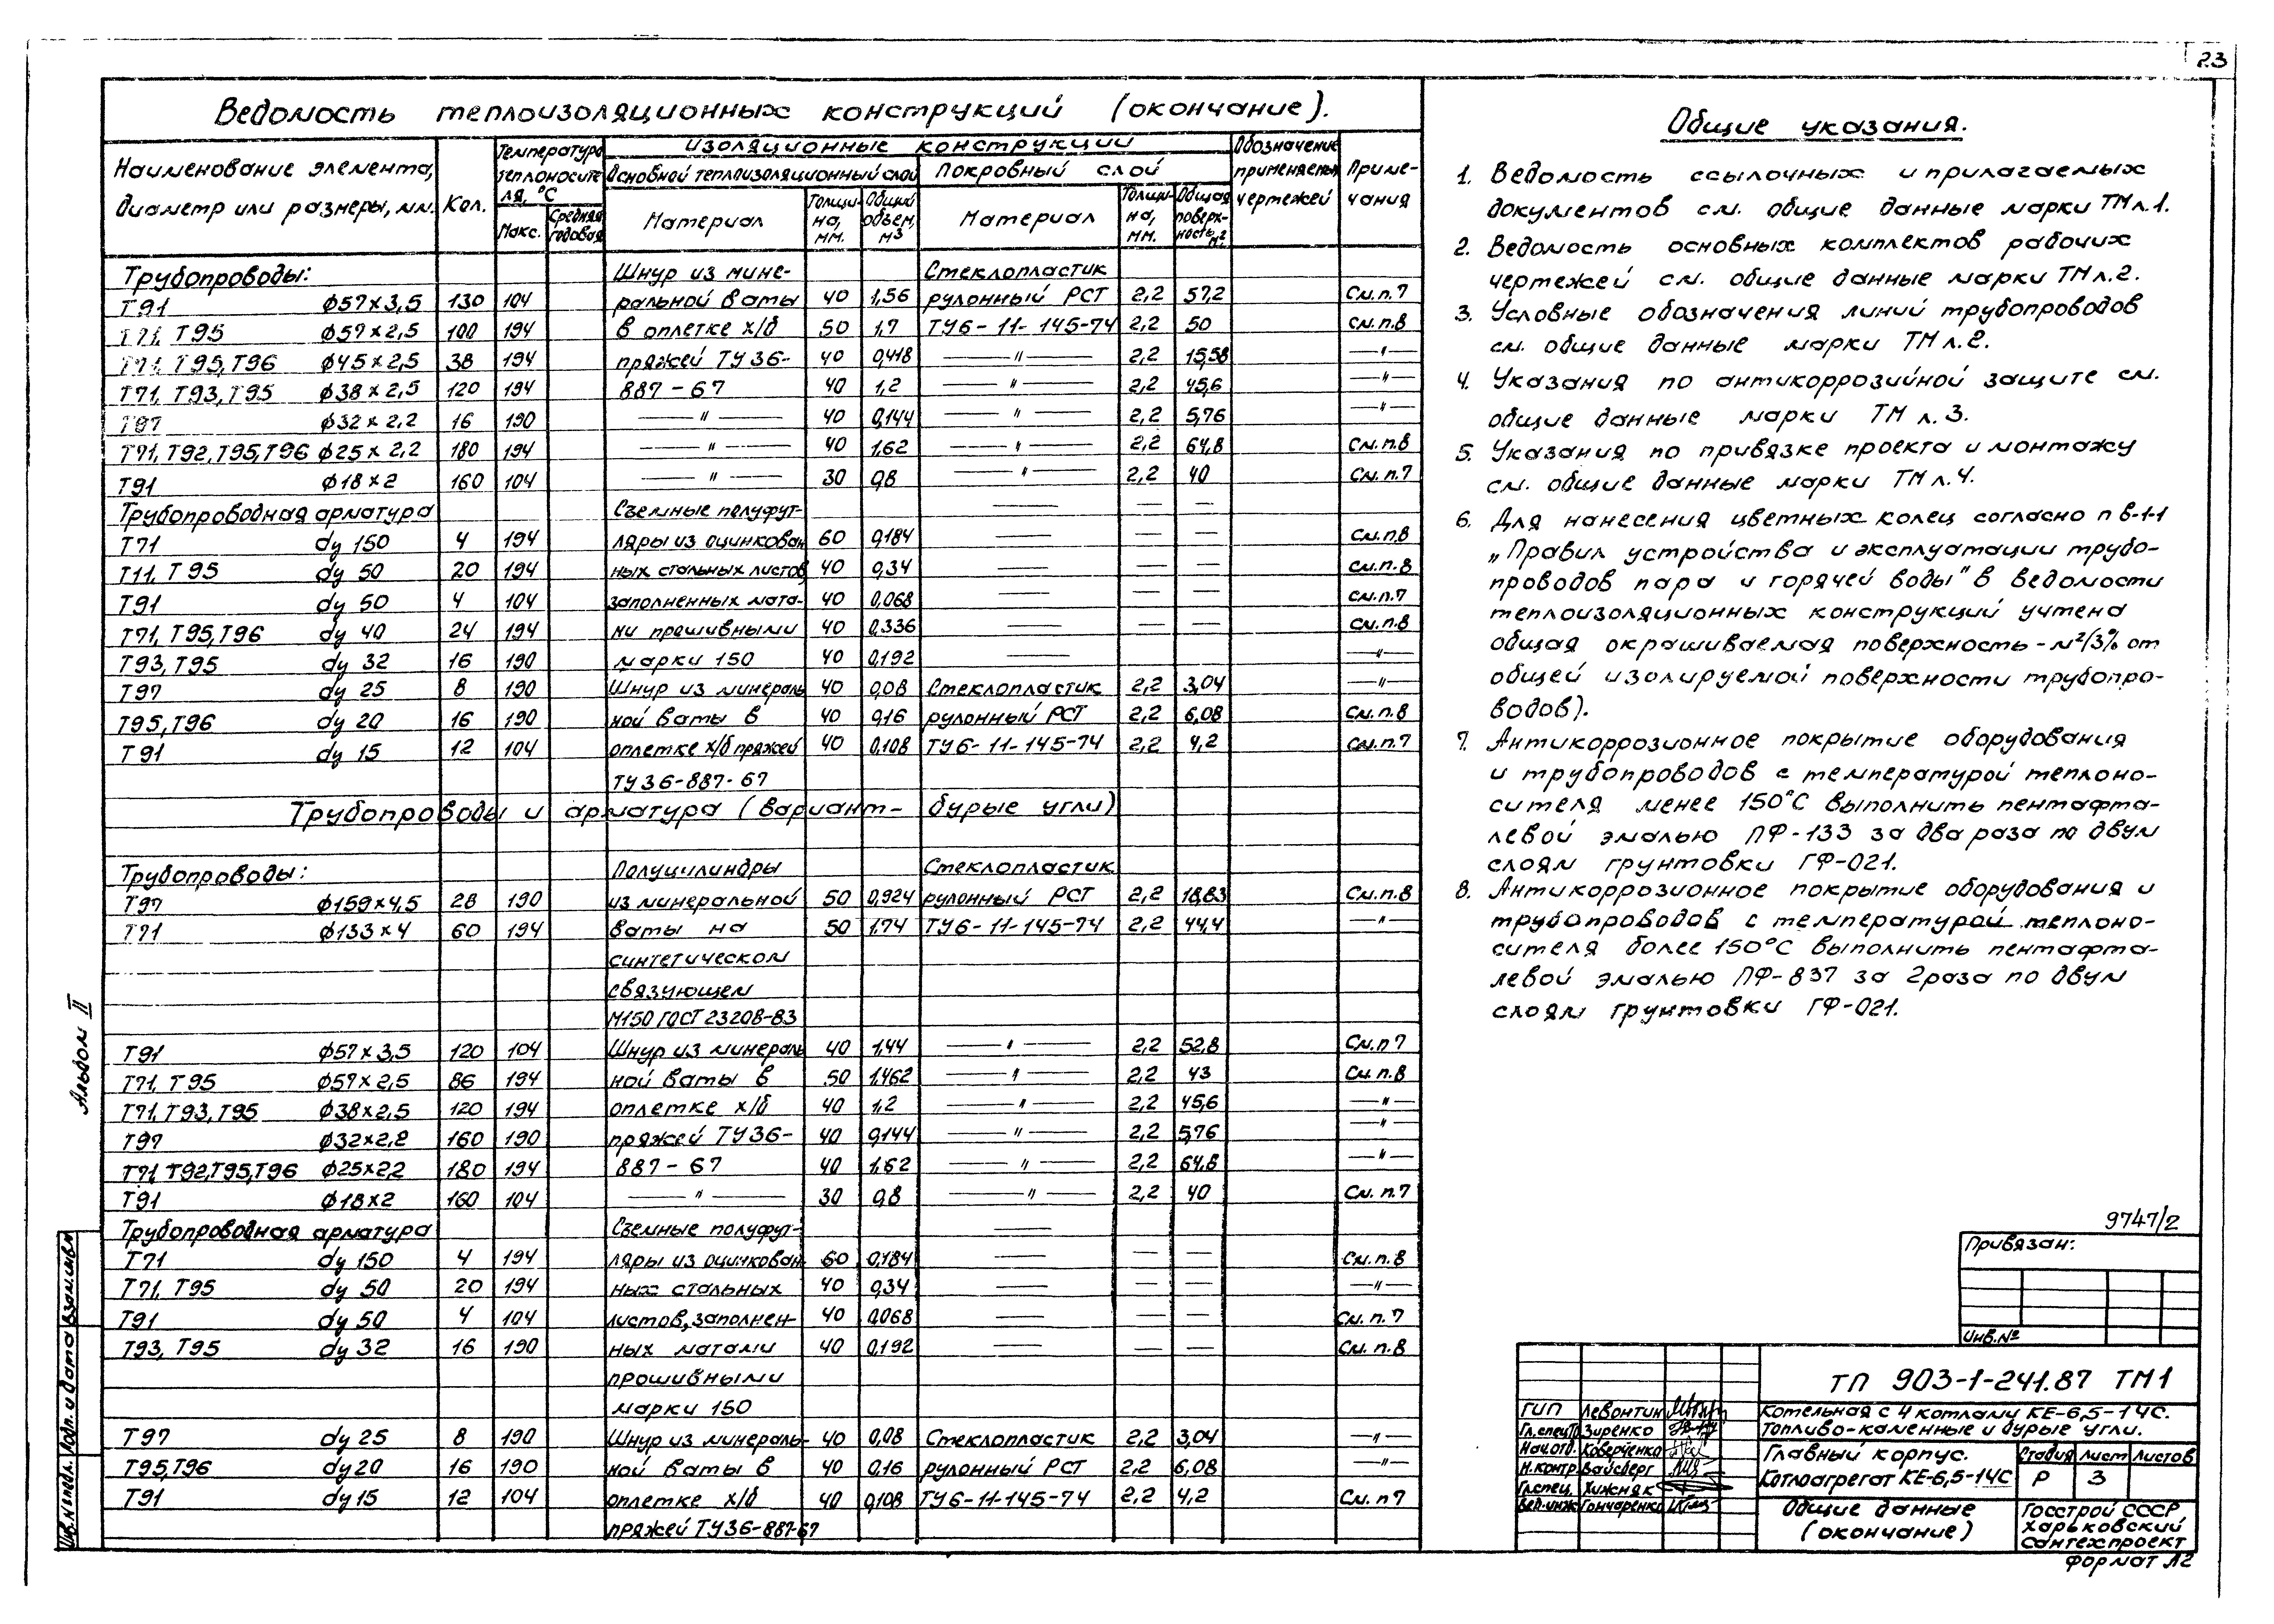 23
Ведомость теплоизоляционных конструкций (окончание).
Наименование элемента, диаметр или размеры, мм.
Кол.
Температура теплоносителя, °С
Макс.
Средняя годовая
Изоляционные конструкции
Основной теплоизоляционный слой
Покровный слой
Материал
Толщина, мм.
Общий объем, м3
Материал
Толщина, мм.
Общая поверхность, м2
Обозначение применяемых чертежей
Примечания
Трубопроводы: Шнур из мине- Стеклопластик
Т91 ф57×3,5 130 104 ральной ваты 40 1,56 рулонный РСТ 2,2 57,2 См.п.7
Т71, Т95 ф57×2,5 100 194 в оплетке х/б 50 1,7 ТУ6-11-145-74 2,2 50 См.п.8
Т71, Т95, Т96 ф45×2,5 38 194 пряжей ТУ 36- 40 0,418 —〃— 2,2 15,58 —〃—
Т71, Т93, Т95 ф38×2,5 120 194 887-67 40 1,2 —〃— 2,2 45,6 —〃—
Т97 ф32×2,2 16 190 —〃— 40 0,144 —〃— 2,2 5,76 —〃—
Т71, Т92, Т95, Т96 ф25×2,2 180 194 —〃— 40 1,62 —〃— 2,2 64,8 См.п.8
Т91 ф18×2 160 104 —〃— 30 0,8 —〃— 2,2 40 См.п.7
Трубопроводная арматура Съемные полуфут- — —
Т71 dу 150 4 194 ляры из оцинкован 60 0,184 — — — См.п.8
Т11, Т95 dу 50 20 194 ных стальных листов, 40 0,34 — — — См.п.8
Т91 dу 50 4 104 заполненных мата- 40 0,068 — — — См.п.7
Т71, Т95, Т96 dу 40 24 194 ми прошивными 40 0,336 — — — См.п.8
Т93, Т95 dу 32 16 190 марки 150 40 0,192 — —〃—
Т97 dу 25 8 190 Шнур из минераль 40 0,08 Стеклопластик 2,2 3,04 —〃—
Т95, Т96 dу 20 16 190 ной ваты в 40 0,16 рулонный РСТ 2,2 6,08 См.п.8
Т91 dу 15 12 104 оплетке х/б пряжей 40 0,108 ТУ6-11-145-74 2,2 4,2 См.п.7
ТУ36-887-67
Трубопроводы и арматура (вариант - бурые угли)
Трубопроводы: Полуцилиндры Стеклопластик
Т97 ф159×4,5 28 190 из минеральной 50 0,924 рулонный РСТ 2,2 18,83 См.п.8
Т71 ф133×4 60 194 ваты на 50 1,74 ТУ6-11-145-74 2,2 44,4 —〃—
синтетическом
связующем
М150 ГОСТ 23208-83
Т91 ф57×3,5 120 104 Шнур из минераль 40 1,44 —〃— 2,2 52,8 См.п7
Т71, Т95 ф57×2,5 86 194 ной ваты в 50 1,462 —〃— 2,2 43 См.п.8
Т71, Т93, Т95 ф38×2,5 120 194 оплетке х/б 40 1,2 —〃— 2,2 45,6 —〃—
Т97 ф32×2,2 160 190 пряжей ТУ36- 40 0,144 —〃— 2,2 5,76 —〃—
Т71, Т92, Т95, Т96 ф25×2,2 180 194 887-67 40 1,62 —〃— 2,2 64,8 —〃—
Т91 ф18×2 160 104 —〃— 30 0,8 —〃— 2,2 40 См.п.7
Трубопроводная арматура Съемные полуфут- —
Т71 dу 150 4 194 ляры из оцинкован 60 0,184 — — — См.п.8
Т71, Т95 dу 50 20 194 ных стальных 40 0,34 — — — —〃—
Т91 dу 50 4 104 листов, заполнен- 40 0,068 — — — См.п.7
Т93, Т95 dу 32 16 190 ных матами 40 0,192 — — — См.п.8
прошивными
марки 150
Т97 dу 25 8 190 Шнур из минераль- 40 0,08 Стеклопластик 2,2 3,04 —〃—
Т95, Т96 dу 20 16 190 ной ваты в 40 0,16 рулонный РСТ 2,2 6,08 —〃—
Т91 dу 15 12 104 оплетке х/б 40 0,108 ТУ6-11-145-74 2,2 4,2 См.п7
пряжей ТУ36-887-67
Общие указания.
1. Ведомость ссылочных и прилагаемых
документов см. общие данные марки ТМ л.1.
2. Ведомость основных комплектов рабочих
чертежей см. общие данные марки ТМ л.2.
3. Условные обозначения линий трубопроводов
см. общие данные марки ТМ л.2.
4. Указания по антикоррозийной защите см.
общие данные марки ТМ л.3.
5. Указания по привязке проекта и монтажу
см. общие данные марки ТМ л.4.
6. Для нанесения цветных колец согласно п 8-1-1
„Правил устройства и эксплуатации трубо-
проводов пара и горячей воды" в ведомости
теплоизоляционных конструкций учтена
общая окрашиваемая поверхность - м²(3% от
общей изолируемой поверхности трубопро-
водов).
7. Антикоррозионное покрытие оборудования
и трубопроводов с температурой теплоно-
сителя менее 150°С выполнить пентафта-
левой эмалью ПФ-133 за два раза по двум
слоям грунтовки ГФ-021.
8. Антикоррозионное покрытие оборудования и
трубопроводов с температурой теплоно-
сителя более 150°С выполнить пентафта-
левой эмалью ПФ-837 за 2 раза по двум
слоям грунтовки ГФ-021.
9747/2
Привязан:
Инв.№
ТП 903-1-241.87 ТМ1
ГИП Левонтин
Гл.спец.Тр. Зиренко
Нач.отд. Коверченко
Н.контр. Вайсберг
Гл.спец. Хижняк
Вед.инж. Гончаренко
Котельная с 4 котлами КЕ-6,5-14С.
Топливо-каменные и бурые угли.
Главный корпус.
Котлоагрегат КЕ-6,5-14С
Стадия Лист Листов
Р 3
Общие данные
(окончание)
Госстрой СССР
Харьковский
Сантехпроект
Формат А2
Альбом II
Инв.№ подл. Подп. и дата Взам.инв.№